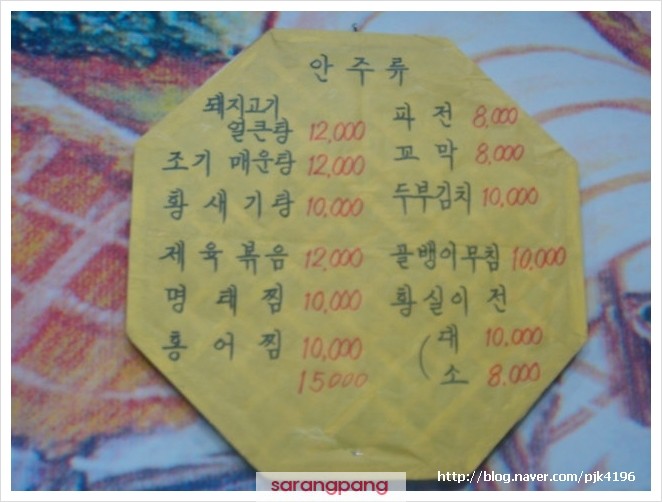 안주류
돼지고기
얼큰탕 12,000
조기 매운탕 12,000
황새기탕 10,000
제육볶음 12,000
명태찜 10,000
홍어찜 10,000
15000
파전 8,000
꼬막 8,000
두부김치 10,000
골뱅이무침 10,000
황실이전
( 대 10,000
소 8,000
sarangpang
http://blog.naver.com/pjk4196